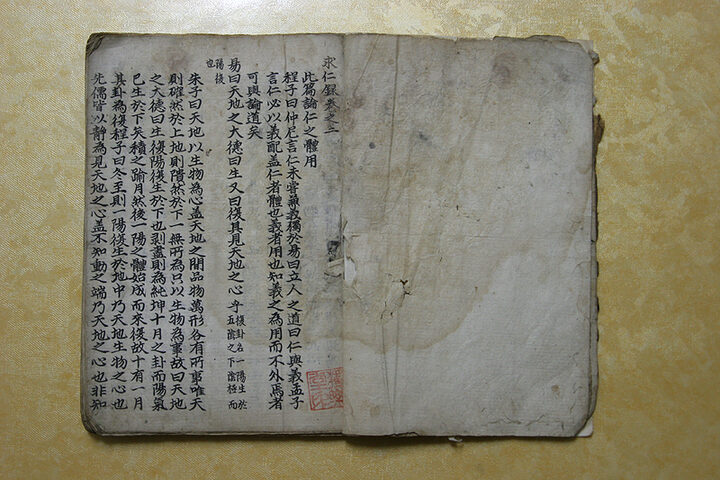 求仁錄卷之二
此篇論仁之體用
程子曰仲尼言仁未嘗兼義獨於易曰立人之道曰仁與義孟子
言仁必以義配盖仁者體也義者用也知義之為用而不外焉者
可與論道矣
易曰天地之大德曰生又曰復其見天地之心乎
復卦名一陽生於
五陰之下陰極而
陽復
也
朱子曰天地以生物為心盖天地之間品物萬形各有所事唯天
則確然於上地則隤然於下一無所為只以生物為事故曰天地
之大德曰生復陽復生於下也剥盡則為純坤十月之卦而陽氣
已生於下矣積之踰月然後一陽之體始成而来復故十有一月
其卦為復程子曰冬至則一陽復生於地中乃天地生物之心也
先儒皆以静為見天地之心盖不知動之端乃天地之心也非知